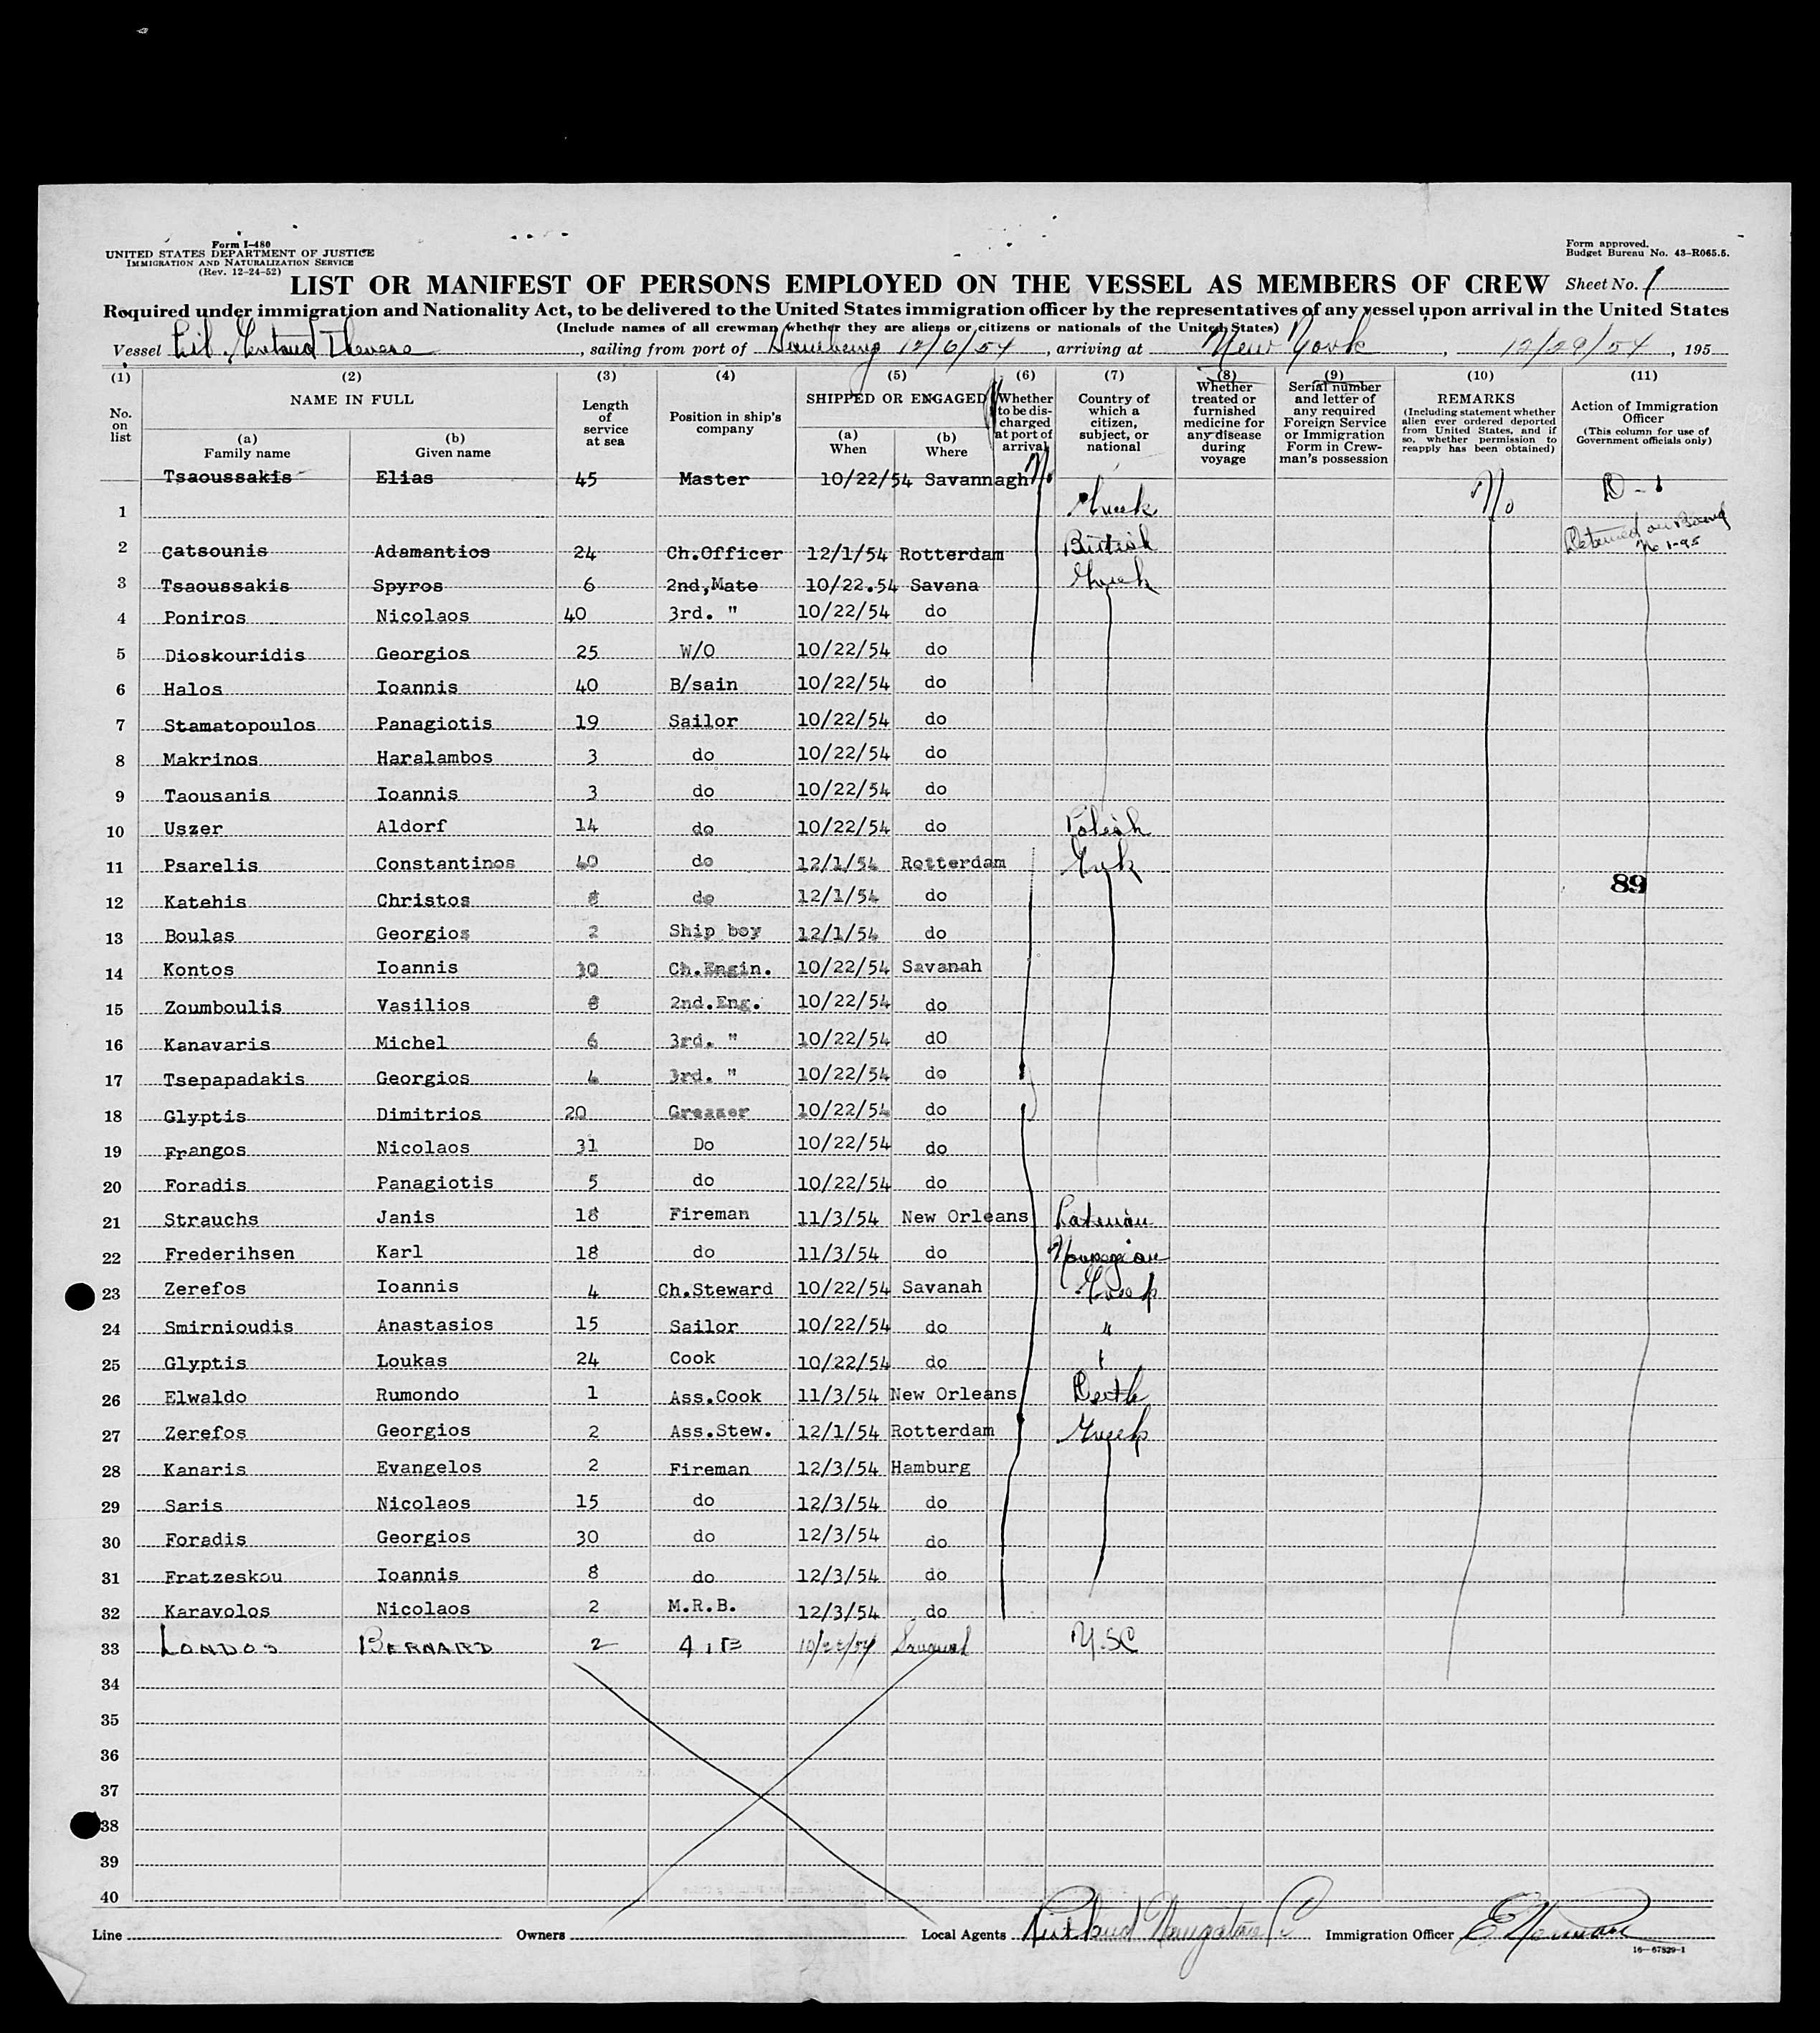 Form I-480
UNITED STATES DEPARTMENT OF JUSTICE
IMMIGRATION AND NATURALIZATION SERVICE
(Rev. 12-24-52)
Form approved.
Budget Bureau No. 43-R065.5.
LIST OR MANIFEST OF PERSONS EMPLOYED ON THE VESSEL AS MEMBERS OF CREW Sheet No. 1
Required under immigration and Nationality Act, to be delivered to the United States immigration officer by the representatives of any vessel upon arrival in the United States
(Include names of all crewman whether they are aliens or citizens or nationals of the United States)
Vessel Lib. Therese, sailing from port of 12/6/54, arriving at New York, 12/29/54, 195
(1) (2) (3) (4) (5) (6) (7) (8) (9) (10) (11)
No. on list
NAME IN FULL
(a) Family name
(b) Given name
Length of service at sea
Position in ship's company
SHIPPED OR ENGAGED
(a) When
(b) Where
Whether to be discharged at port of arrival
Country of which a citizen, subject, or national
Whether treated or furnished medicine for any disease during voyage
Serial number and letter of any required Foreign Service or Immigration Form in Crew-man's possession
REMARKS
(Including statement whether alien ever ordered deported from United States, and if so, whether permission to reapply has been obtained)
Action of Immigration Officer
(This column for use of Government officials only)
Tsaoussakis Elias 45 Master 10/22/54 Savannagh No No D-1
1 Greek
2 Catsounis Adamantios 24 Ch.Officer 12/1/54 Rotterdam British Detained on Board
3 Tsaoussakis Spyros 6 2nd,Mate 10/22.54 Savana Greek
4 Poniros Nicolaos 40 3rd. " 10/22/54 do
5 Dioskouridis Georgios 25 W/O 10/22/54 do
6 Halos Ioannis 40 B/sain 10/22/54 do
7 Stamatopoulos Panagiotis 19 Sailor 10/22/54 do
8 Makrinos Haralambos 3 do 10/22/54 do
9 Taousanis Ioannis 3 do 10/22/54 do
10 Uszer Aldorf 14 do 10/22/54 do Polish
11 Psarelis Constantinos 40 do 12/1/54 Rotterdam Greek
12 Katehis Christos 8 do 12/1/54 do 89
13 Boulas Georgios 2 Ship boy 12/1/54 do
14 Kontos Ioannis 10 Ch.Engin. 10/22/54 Savanah
15 Zoumboulis Vasilios 8 2nd.Eng. 10/22/54 do
16 Kanavaris Michel 6 3rd. " 10/22/54 dO
17 Tsepapadakis Georgios 4 3rd. " 10/22/54 do
18 Glyptis Dimitrios 20 Greaser 10/22/54 do
19 Frangos Nicolaos 31 Do 10/22/54 do
20 Foradis Panagiotis 5 do 10/22/54 do
21 Strauchs Janis 18 Fireman 11/3/54 New Orleans Latvian
22 Frederihsen Karl 18 do 11/3/54 do Norwegian
23 Zerefos Ioannis 4 Ch.Steward 10/22/54 Savanah Greek
24 Smirnioudis Anastasios 15 Sailor 10/22/54 do "
25 Glyptis Loukas 24 Cook 10/22/54 do
26 Elwaldo Rumondo 1 Ass.Cook 11/3/54 New Orleans
27 Zerefos Georgios 2 Ass.Stew. 12/1/54 Rotterdam Greek
28 Kanaris Evangelos 2 Fireman 12/3/54 Hamburg
29 Saris Nicolaos 15 do 12/3/54 do
30 Foradis Georgios 30 do 12/3/54 do
31 Fratzeskou Ioannis 8 do 12/3/54 do
32 Karavolos Nicolaos 2 M.R.B. 12/3/54 do
33 LONDOS BERNARD 2 10/22/54 U.S.C
34
35
36
37
38
39
40
Line Owners Local Agents Immigration Officer
16-67829-1